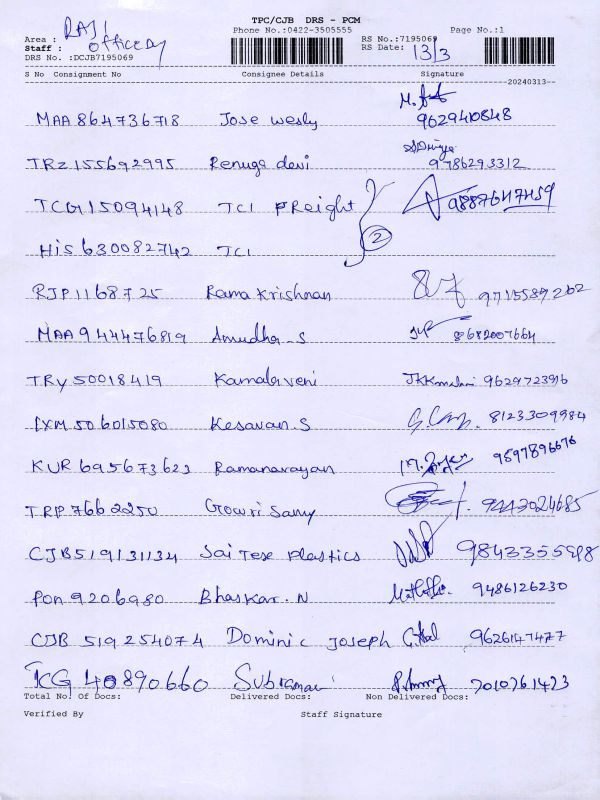 TPC/CJB DRS - PCM
Phone No.:0422-3505555 Page No.:1
Area : RAJI
Staff : officeDy
RS No.:7195069
RS Date: 13/3
DRS No. :DCJB7195069
S No Consignment No Consignee Details Signature
20240313--
MAA 864736718 Jose wesly 9629410848
TRZ 155692995 Renuga devi 9786293312
TCG 15094148 TCI FReight 9887647459
HIS 630082742 TCI 2
RJP 1168725 Rama Krishnan 9715589262
MAA 944476819 Amudha.S 8682007664
TRY 50018419 Kamalaveni 9629723916
IXM 506015080 Kesavan.S 8123309984
KUR 695673623 Ramanarayan 9597896676
TRP 7662250 Gowri Samy 9443024685
CJB 519131134 Sai Tese Plastics 9843355598
PON 9206980 Bhaskar.N 9486126230
CJB 519254074 Dominic Joseph 9626147477
TCG 40890660 Subramani 7010761423
Total No. Of Docs: Delivered Docs: Non Delivered Docs:
Verified By Staff Signature